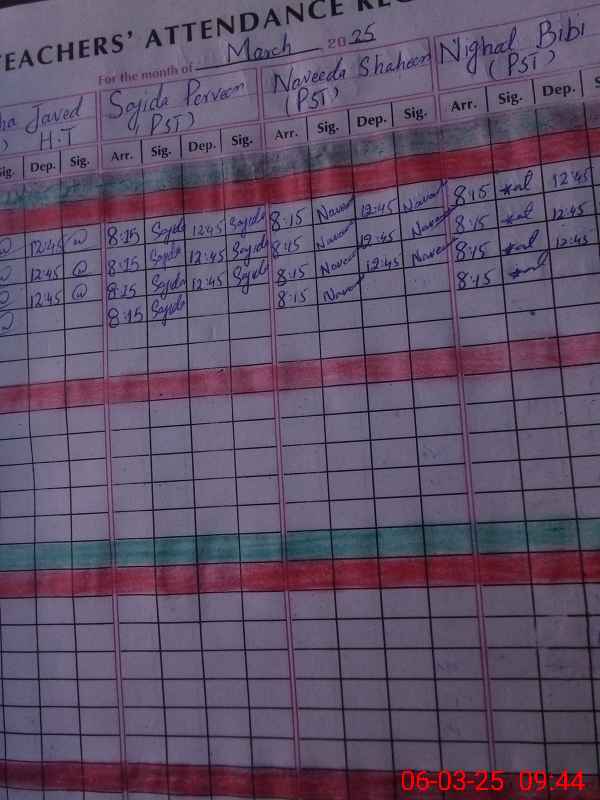 TEACHERS' ATTENDANCE RE
For the month of March 2025
Javed H.T
Sajida Perveen (PST)
Naveeda Shaheen (PST)
Nighal Bibi (PST)
ig. Dep. Sig. Arr. Sig. Dep. Sig. Arr. Sig. Dep. Sig. Arr. Sig. Dep. S
12:45 8:15 Sajida 12:45 Sajida 8:15 12:45 8:15 12:45
12:45 8:15 Sajida 12:45 Sajida 8:15 12:45 8:15 12:45
12:45 8:15 Sajida 12:45 Sajida 8:15 12:45 8:15 12:45
8:15 Sajida 8:15 8:15
06-03-25 09:44